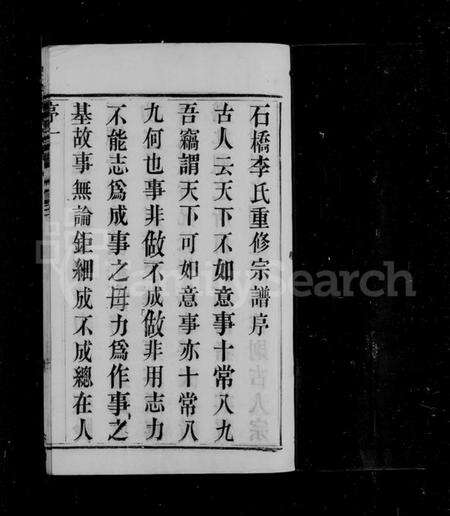 石橋李氏重修宗譜序
古人云天下不如意事十常八九
吾竊謂天下可如意事亦十常八
九何也事非做不成做非用志力
不能志為成事之母力為作事之
基故事無論鉅細成不成總在人
序一
FamilySearch